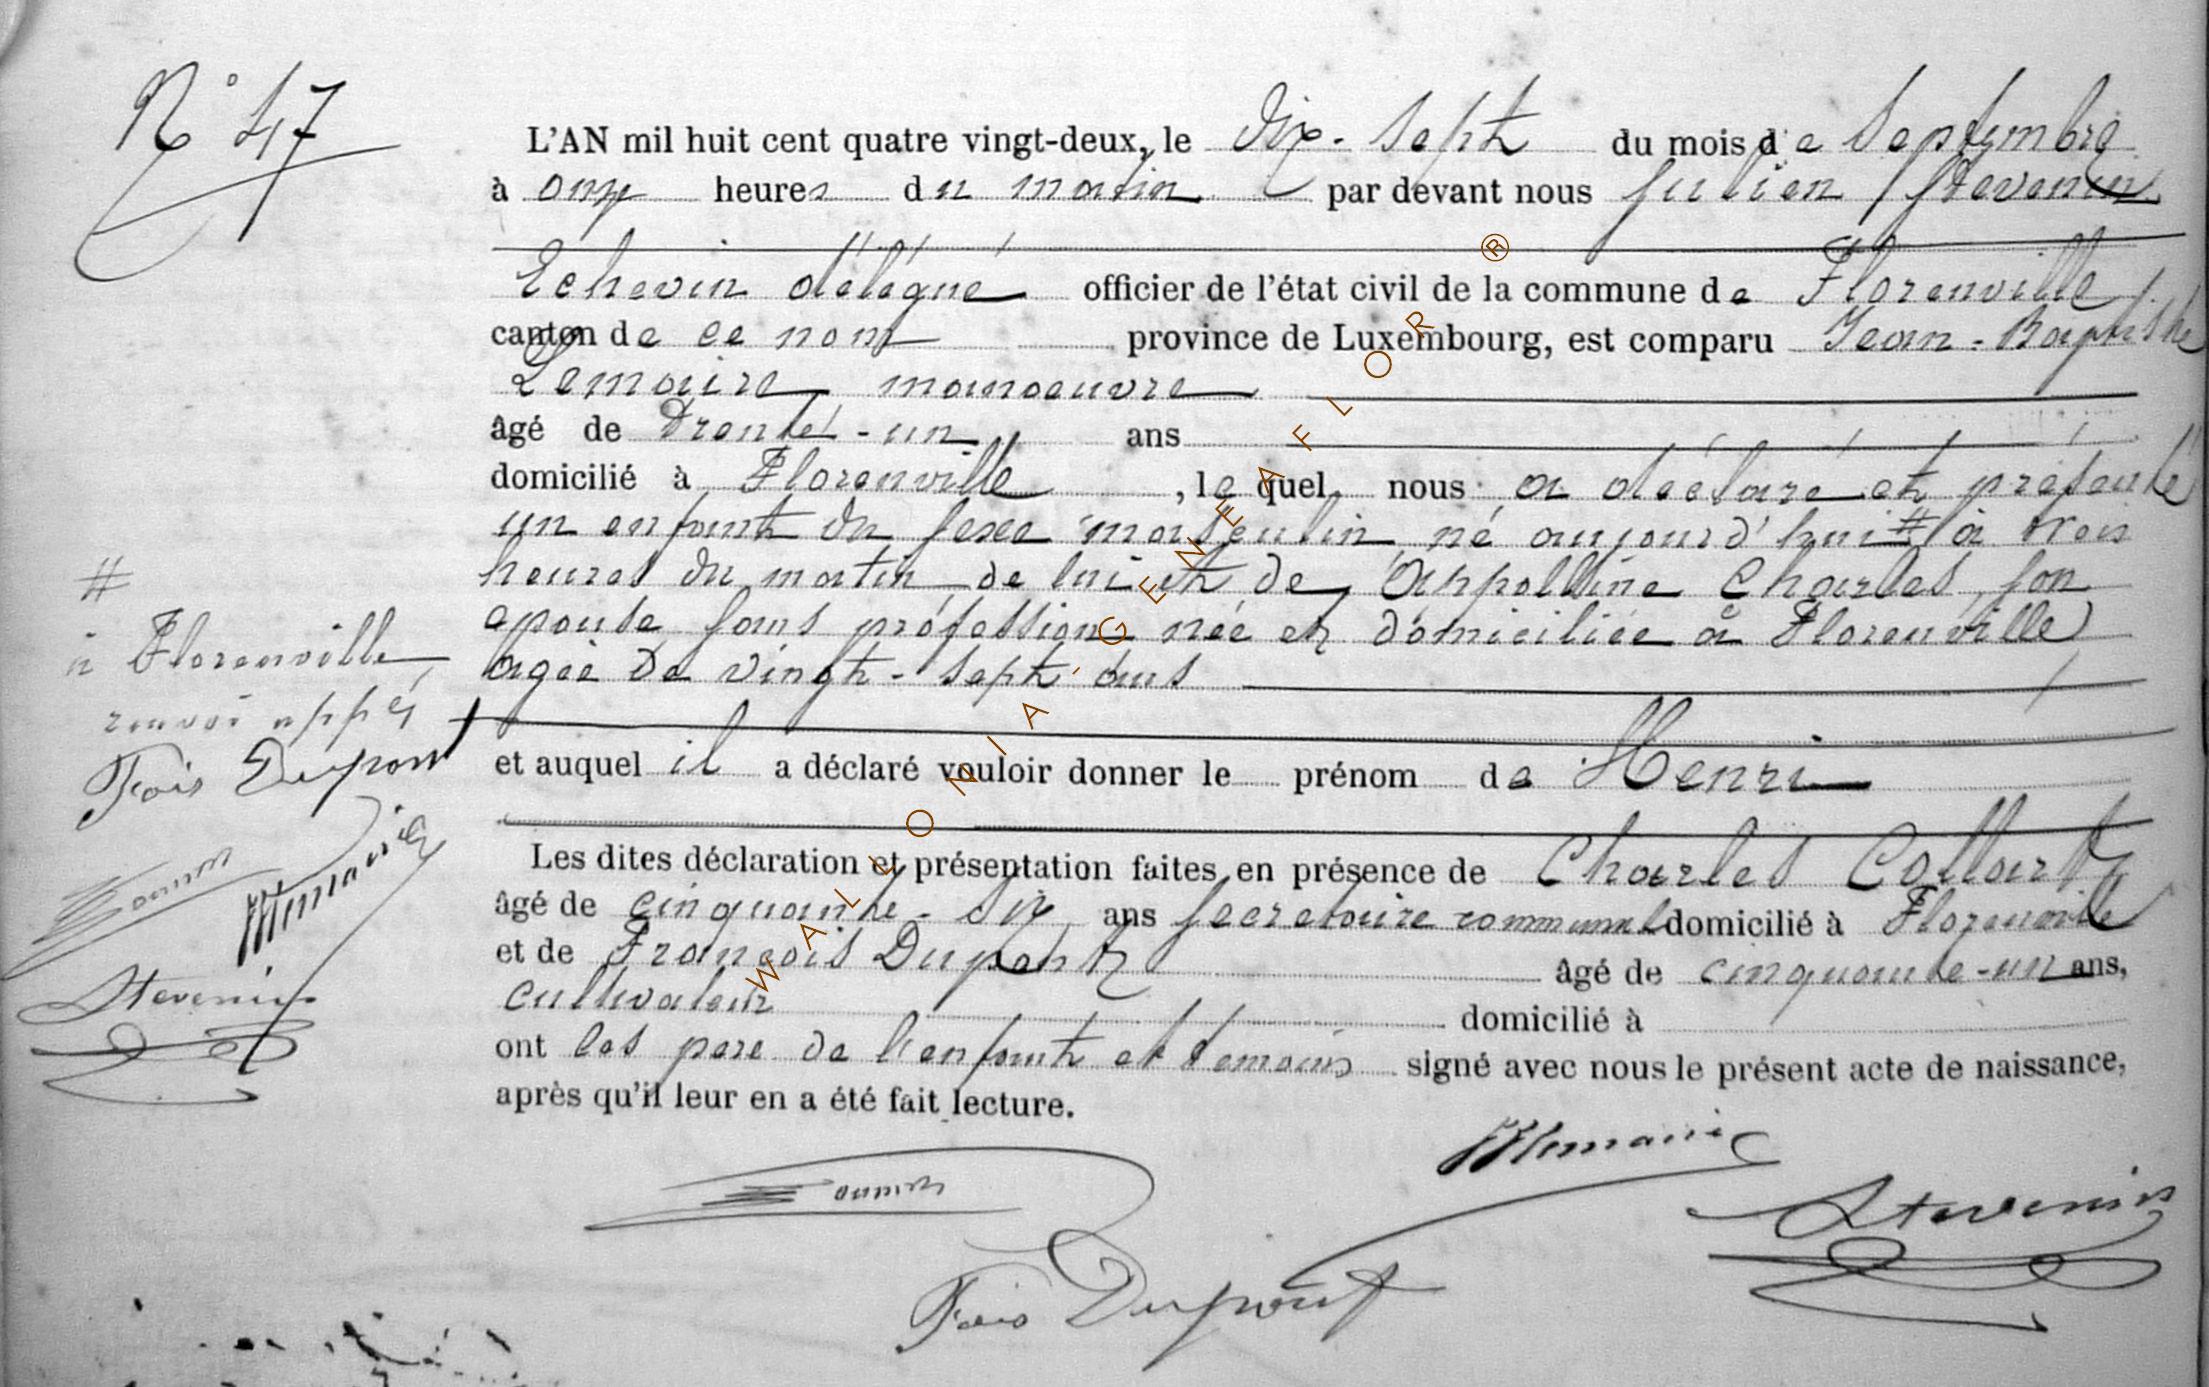 N° 47
L'AN mil huit cent quatre vingt-deux, le dix-sept du mois de Septembre
à onze heures du matin par devant nous Julien Stevenin
Echevin délégué officier de l'état civil de la commune de Florenville
canton de ce nom province de Luxembourg, est comparu Jean-Baptiste
Lemaire manoeuvre
âgé de Trente-un ans
domicilié à Florenville, le quel nous a déclaré et présenté
un enfant du sexe masculin né aujourd'hui # à trois
heures du matin de lui et de Appolline Charles, son
épouse sans profession née et domiciliée à Florenville
agée de vingt-sept ans
et auquel il a déclaré vouloir donner le prénom de Henri
Les dites déclaration et présentation faites en présence de Charles Collart
âgé de cinquante-six ans secretaire communal domicilié à Florenville
et de François Dupont âgé de cinquante-un ans,
cultivateur domicilié à
ont les pere de l'enfant et temoins signé avec nous le présent acte de naissance,
après qu'il leur en a été fait lecture.
#
à Florenville
renvoi appé
Fois Dupont
Stevenin
Stevenin
Fois Dupont
WALLONIA-GENEAFLOR ®